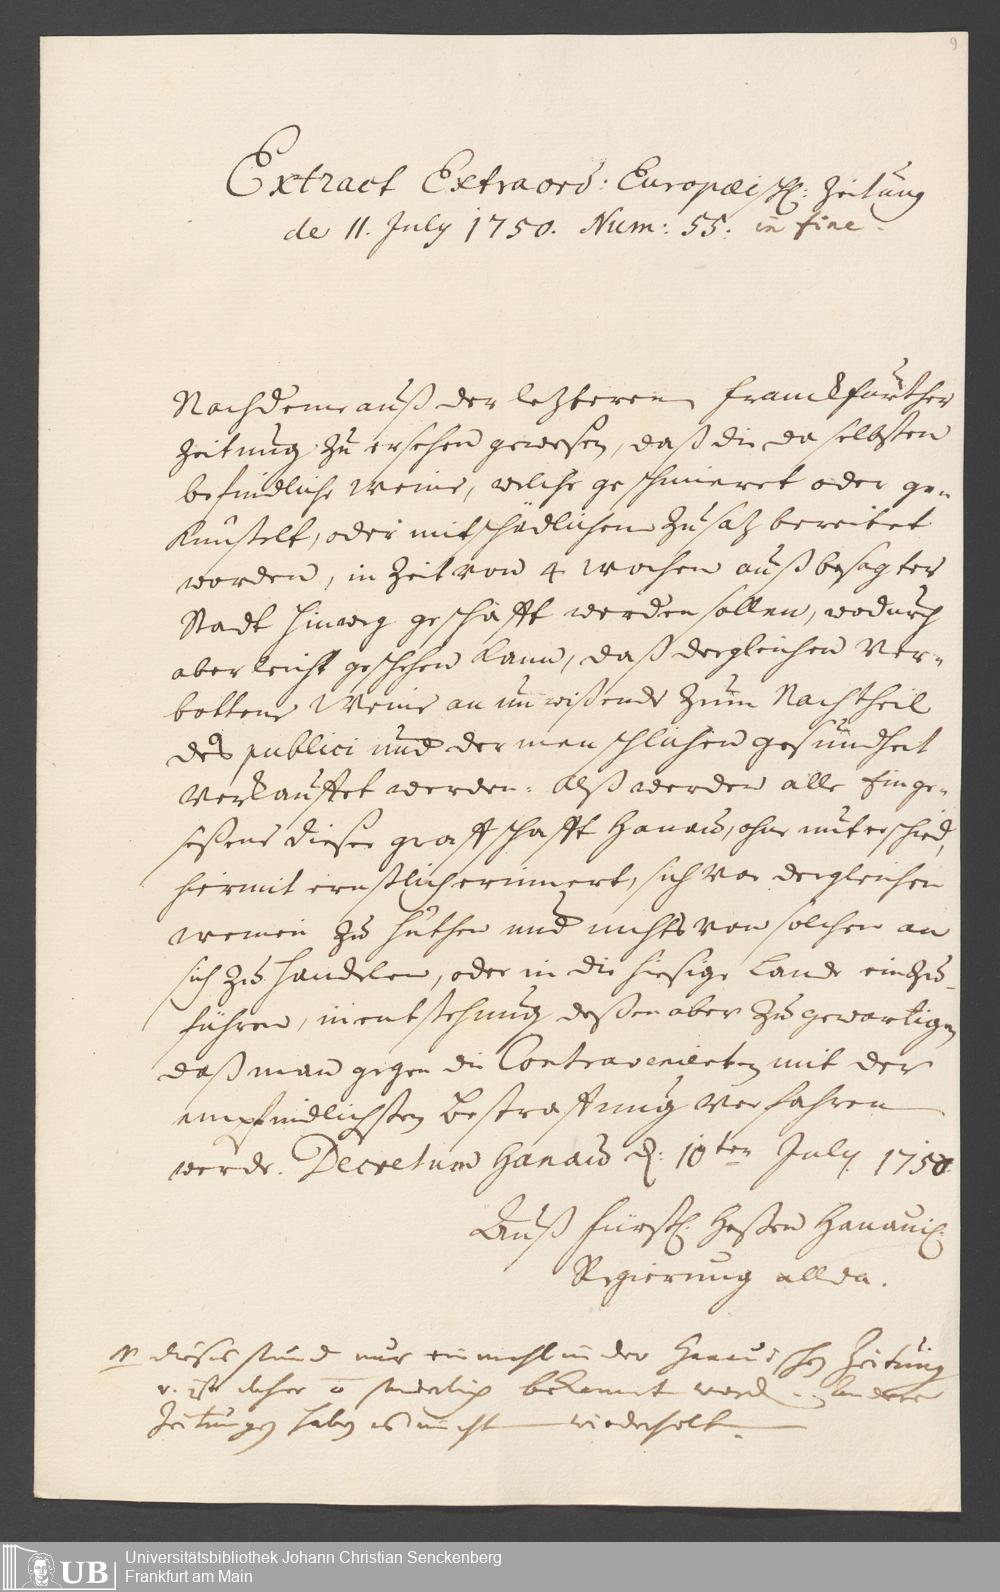 9
Extract Extraord: Europæisch: Zeitung
de 11. July 1750. Num: 55. in fine.
Nachdeme auß der letzteren Franckfurther
Zeitung zu ersehen gewesen, daß die daselbsten
befindliche Weine, welche geschmieret oder ge-
künstelt, oder mit schädlichem Zusatz bereitet
worden, in Zeit von 4 Wochen auß besagter
Stadt hinweg geschafft werden sollen, wodurch
aber leicht geschehen kann, daß dergleichen ver-
bottene Weine an unwißende zum Nachtheil
des publici und der menschlichen gesundheit
verkauffet werden: Alß werden alle Einge-
seßene dieser graffschafft Hanau, ohne unterschied,
hiermit ernstlich erinnert, sich vor dergleichen
weinen zu hüthen und nichts von solchen an
sich zu handelen, oder in die hiesige Lande einzu-
führen, in entstehung deßen aber zu gewartigen
daß man gegen die Contravenienten mit der
empfindlichsten Bestraffung verfahren
werde. Decretum Hanau d: 10ten July 1750
Auß Fürstl: Heßen Hanauis:
Regierung allda.
dieses stund nur einmahl in der Hanauischen Zeitung
v. ist daher sonderlich bekannt word andere
Zeitungen haben es nicht wiederholt.
UB
Universitätsbibliothek Johann Christian Senckenberg
Frankfurt am Main